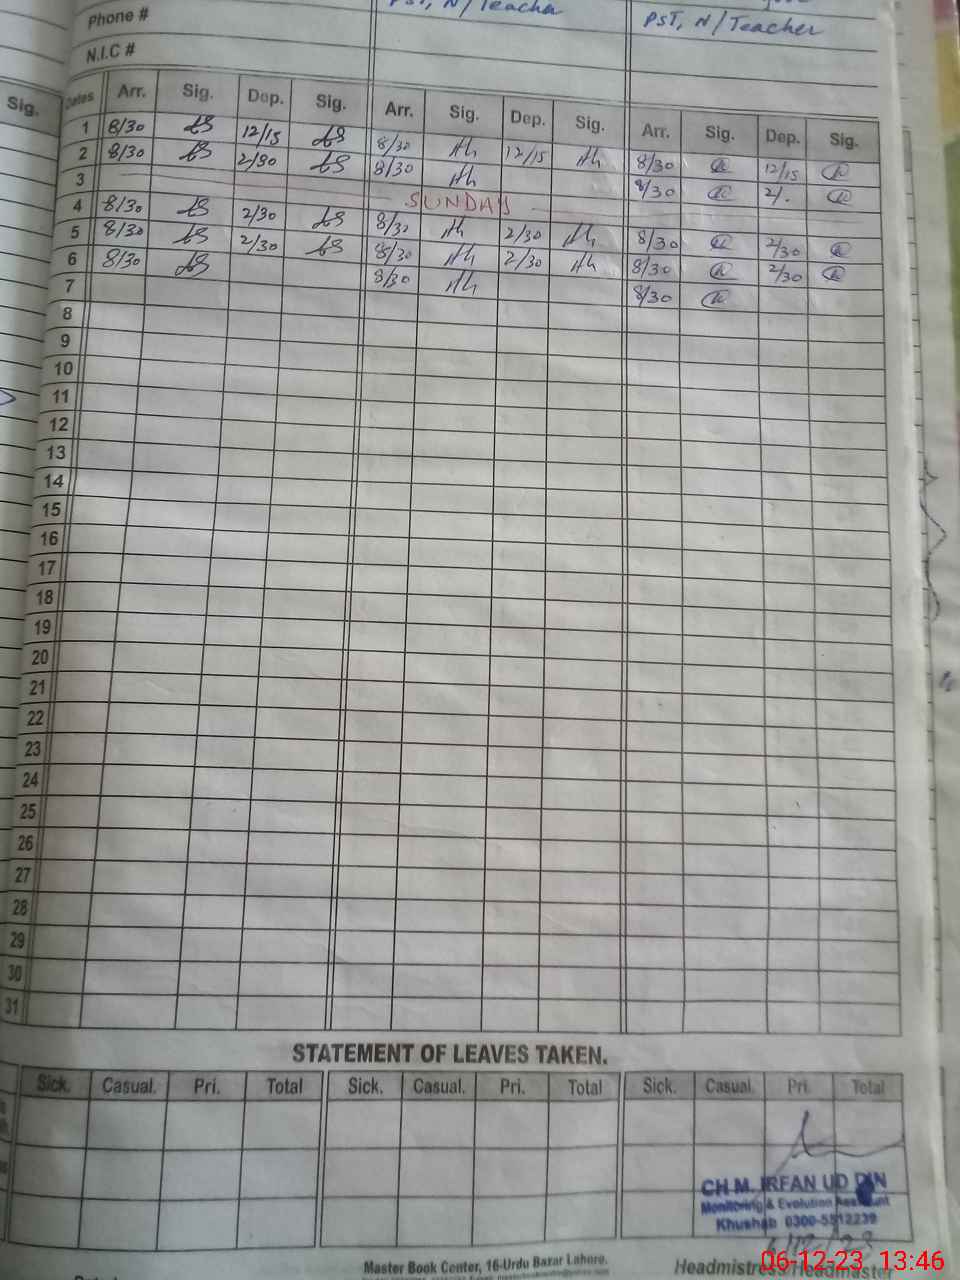 PST, N/Teacher
PST, N/Teacher
Phone #
N.I.C #
Sig.
Dates Arr. Sig. Dep. Sig. Arr. Sig. Dep. Sig. Arr. Sig. Dep. Sig.
1 8/30 12/15 8/30 12/15 8/30 12/15
2 8/30 2/30 8/30 8/30 2/.
3 SUNDAY
4 8/30 2/30 8/30 2/30 8/30 2/30
5 8/30 2/30 8/30 2/30 8/30 2/30
6 8/30 8/30 8/30
7
8
9
10
11
12
13
14
15
16
17
18
19
20
21
22
23
24
25
26
27
28
29
30
31
STATEMENT OF LEAVES TAKEN.
Sick. Casual. Pri. Total Sick. Casual. Pri. Total Sick. Casual. Pri. Total
CH M. IRFAN UD DIN
Monitoring & Evolution Assistant
Khushab 0300-5512239
6/12/23
Master Book Center, 16-Urdu Bazar Lahore.
Headmistress/Headmaster
06-12-23 13:46